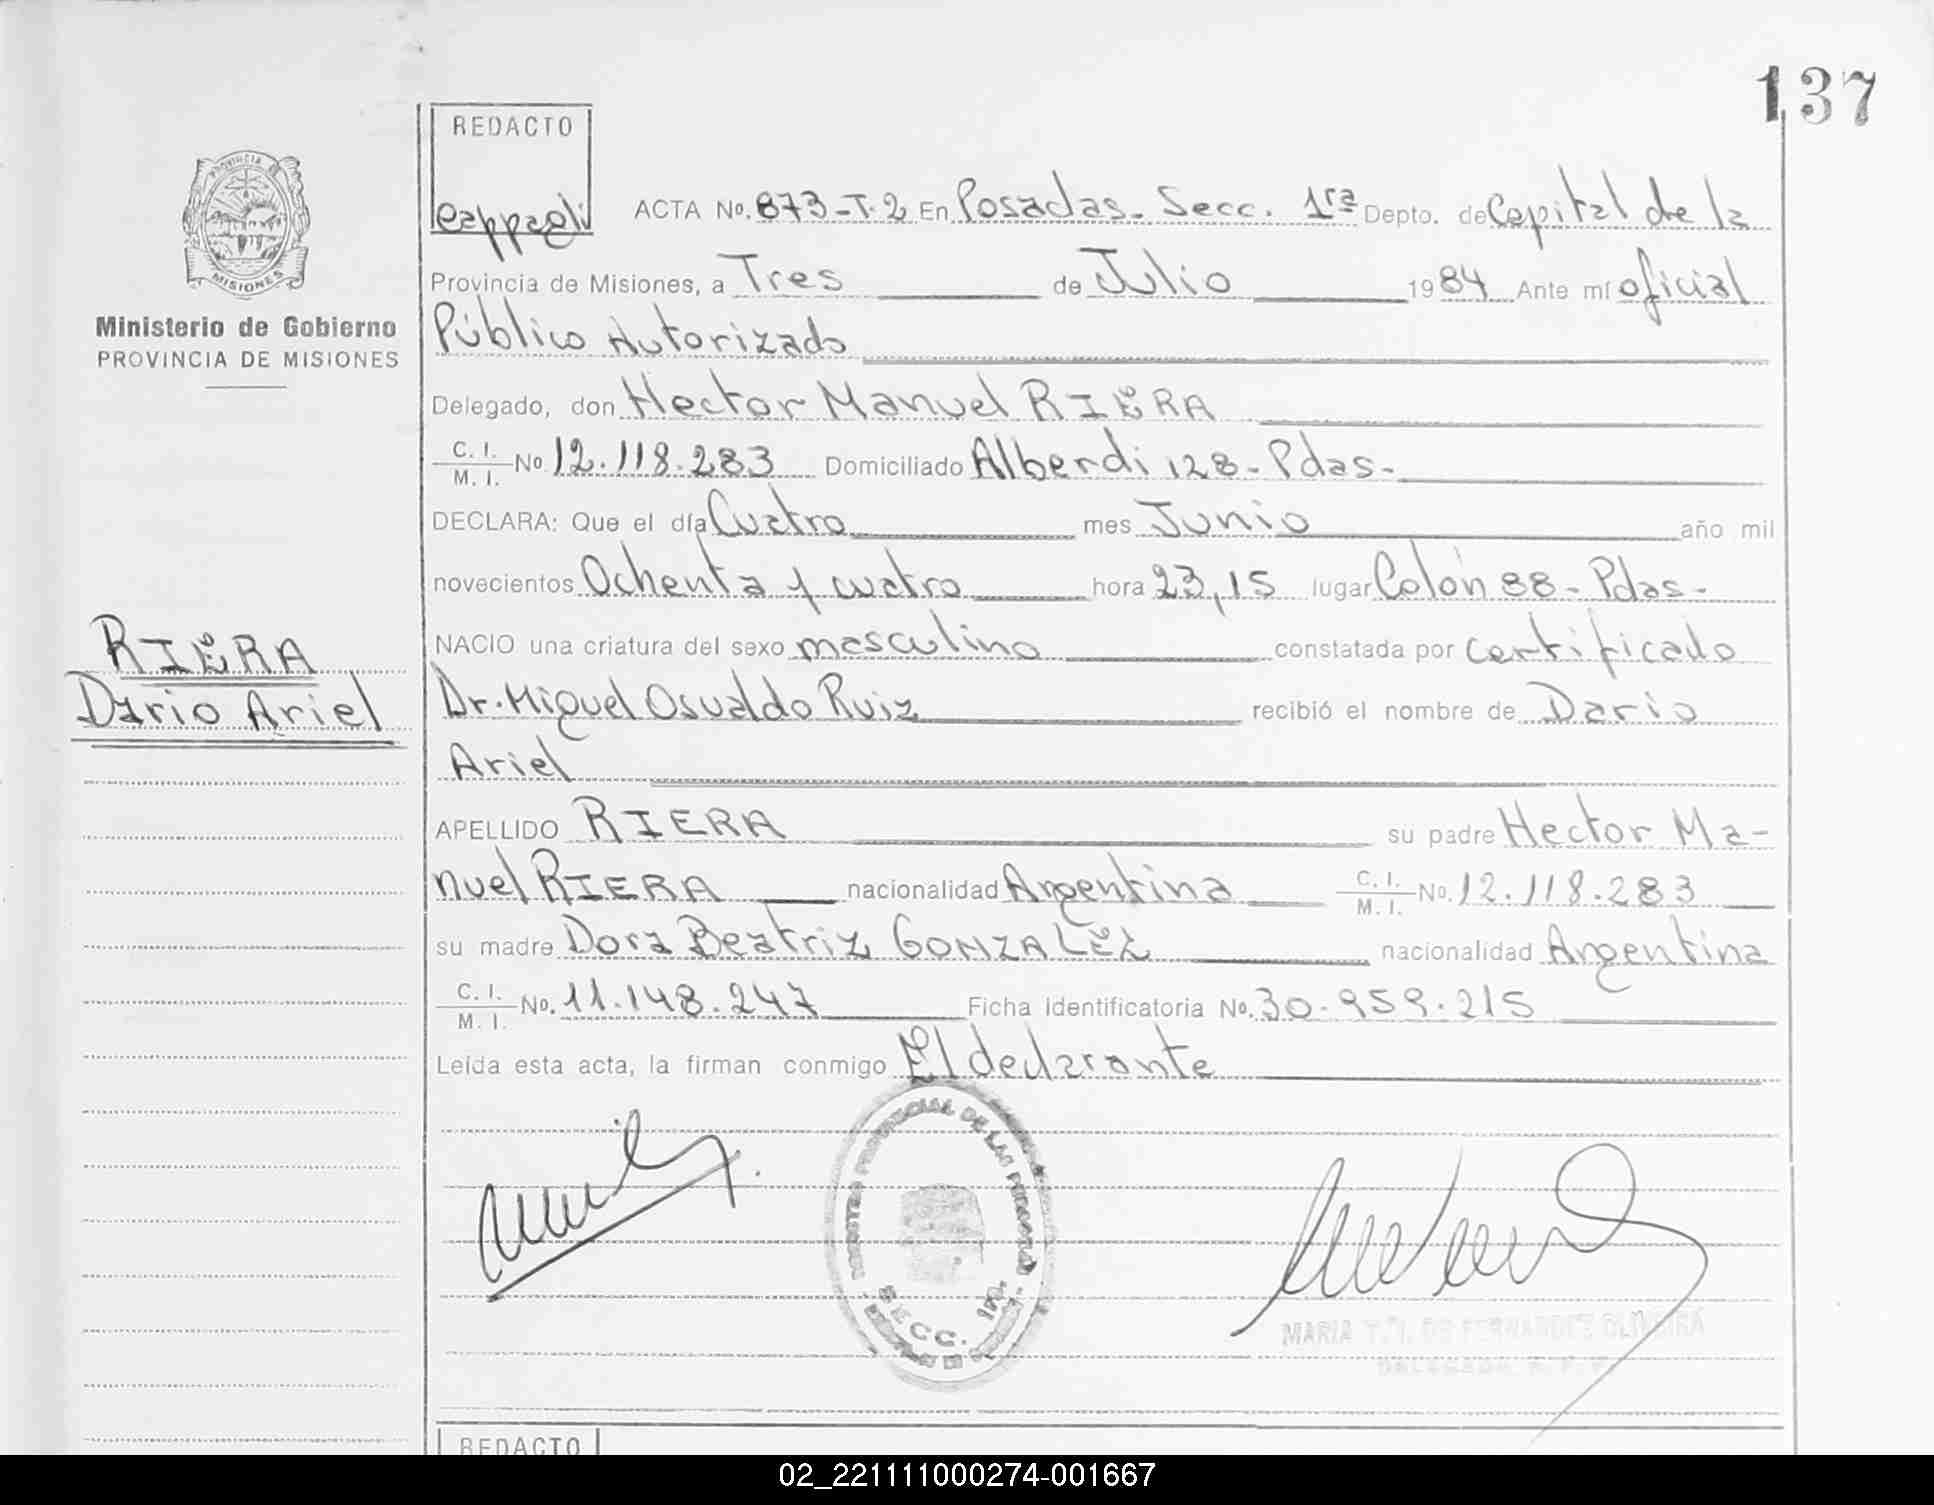 137
REDACTO
Cappagli
PROVINCIA
MISIONES
Ministerio de Gobierno
PROVINCIA DE MISIONES
ACTA No. 873-T-2 En Posadas. Secc. 1ra Depto. de Capital de la
Provincia de Misiones, a Tres de Julio 1984 Ante mí oficial
Público Autorizado
Delegado, don Hector Manuel RIERA
C. I. M. I. No 12.118.283 Domiciliado Alberdi 128- Pdas-
DECLARA: Que el día Cuatro mes Junio año mil
novecientos Ochenta y cuatro hora 23,15 lugar Colón 88- Pdas-
RIERA
Dario Ariel
NACIO una criatura del sexo masculino constatada por certificado
Dr. Miguel Osvaldo Ruiz recibió el nombre de Dario
Ariel
APELLIDO RIERA su padre Hector Ma-
nuel RIERA nacionalidad Argentina C. I. M. I. No. 12.118.283
su madre Dora Beatriz GONZALEZ nacionalidad Argentina
C. I. M. I. No. 11.148.247 Ficha identificatoria No. 30.959.215
Leída esta acta, la firman conmigo El declarante
PROVINCIAL DE LAS PERSONAS
SECC. 1ra.
MARIA T. I. DE FERNANDEZ OLIVEIRA
DELEGADA
REDACTO
02_221111000274-001667